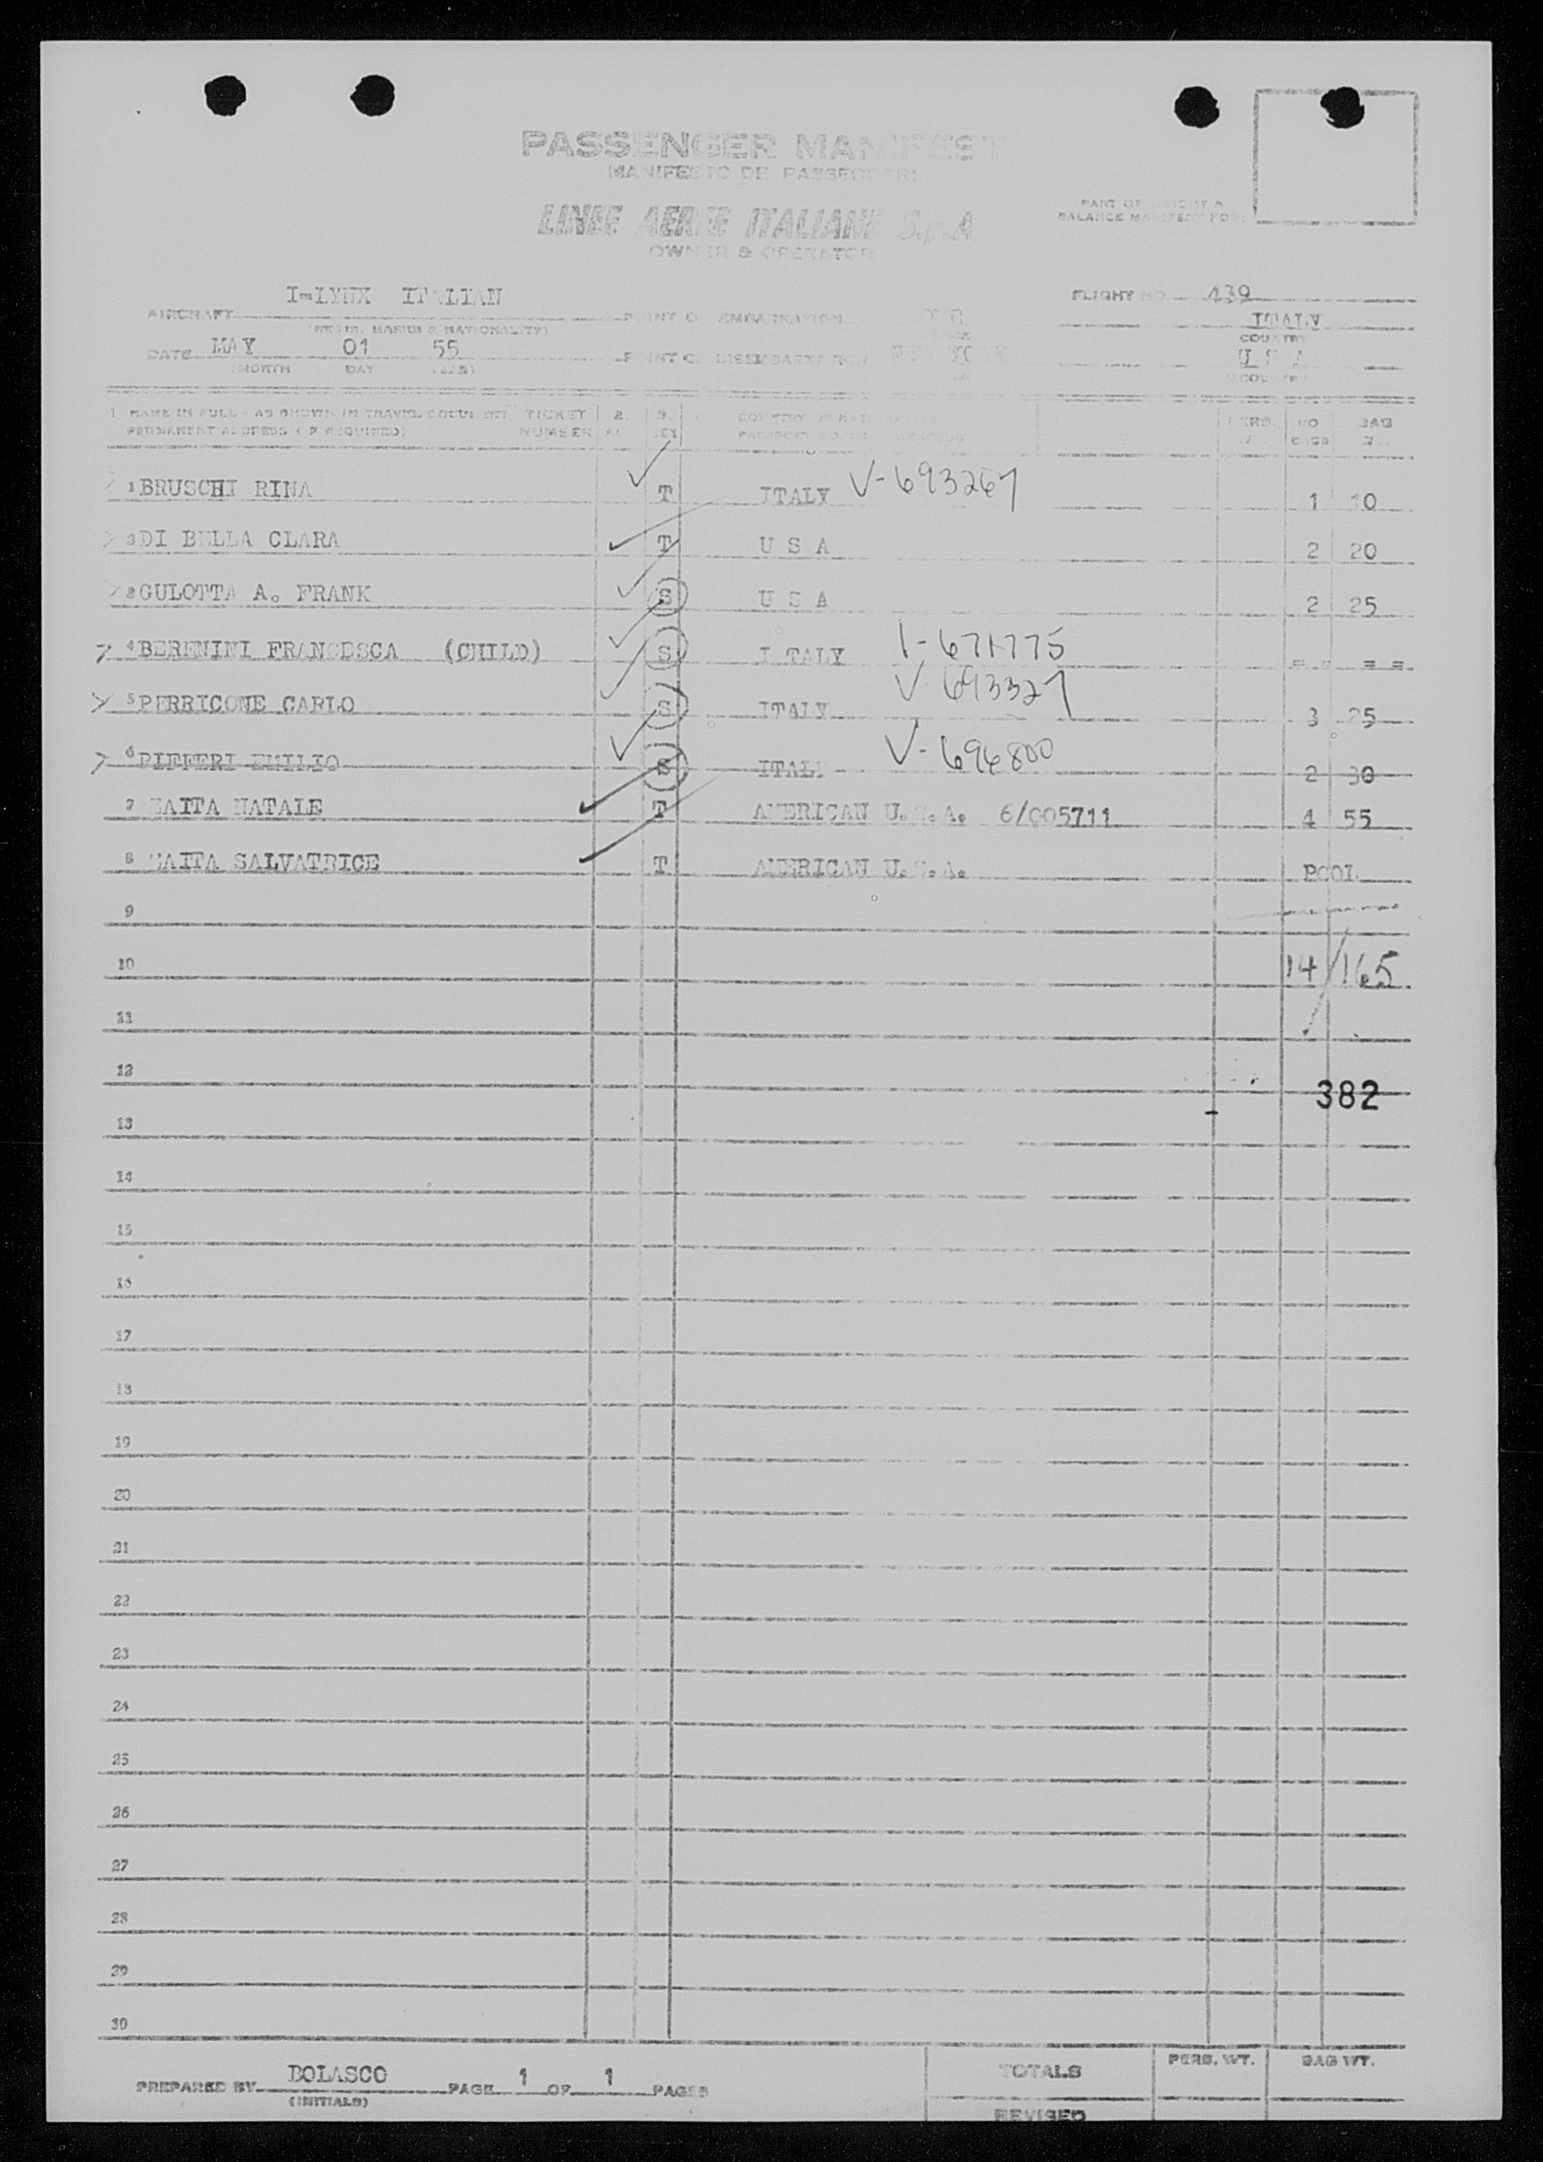 PASSENGER MANIFEST
MANIFESTO DE PASSEGGERI
LINEE AEREE ITALIANE S.p.A
OWNER & OPERATOR
PART OF WEIGHT &
BALANCE MANIFEST FOR
I-LYNX ITALIAN
FLIGHT NO. 439
AIRCRAFT
POINT OF EMBARKATION
ITALY
COUNTRY
DATE MAY 01 55
POINT OF DISEMBARKATION
U S A
(MONTH DAY YEAR)
COUNTRY
1 NAME IN FULL - AS SHOWN IN TRAVEL DOCUMENT TICKET 2. 3. PERS. NO BAG
PERMANENT ADDRESS (IF REQUIRED) NUMBER SEX BAGS
1 BRUSCHI RINA T ITALY V-693267 1 10
2 DI BELLA CLARA T U S A 2 20
3 GULOTTA A. FRANK S U S A 2 25
4 BERENINI FRANCESCA (CHILD) S ITALY 1-671775 = = = =
5 PERRICONE CARLO S ITALY V 693327 3 25
6 PIFFERI EMILIO S ITALY V-696800 2 30
7 ZAITA NATALE T AMERICAN U.S.A. 6/005711 4 55
8 ZAITA SALVATRICE T AMERICAN U.S.A. POOL
9
10 14/165
11
12 382
13
14
15
16
17
18
19
20
21
22
23
24
25
26
27
28
29
30
PREPARED BY BOLASCO PAGE 1 OF 1 PAGES TOTALS PERS. WT. BAG WT.
(INITIALS)
REVISED